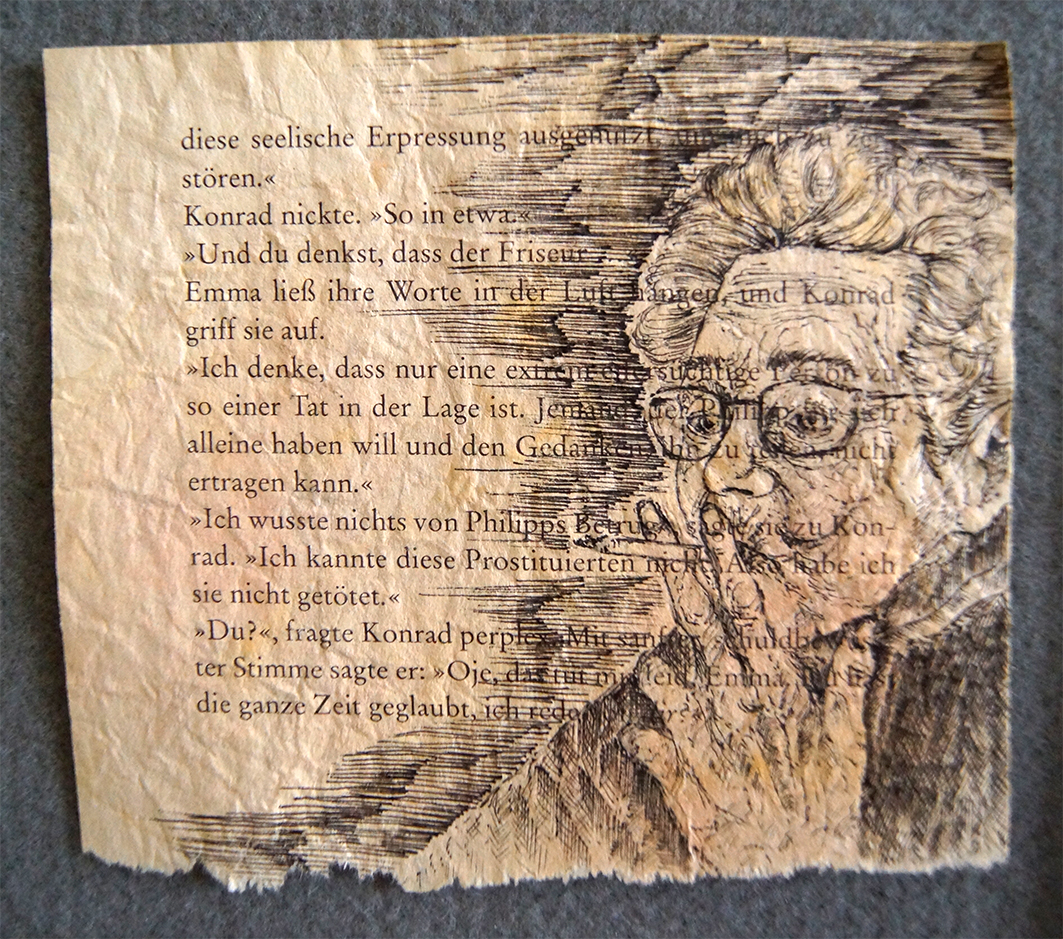 diese seelische Erpressung ausgenutzt, um mich zu zer-
stören.«
Konrad nickte. »So in etwa.«
»Und du denkst, dass der Friseur
Emma ließ ihre Worte in der Luft hängen, und Konrad
griff sie auf.
»Ich denke, dass nur eine extrem eifersüchtige Person zu
so einer Tat in der Lage ist. Jemand, der Philipp für sich
alleine haben will und den Gedanken, ihn zu teilen, nicht
ertragen kann.«
»Ich wusste nichts von Philipps Betrug«, sagte sie zu Kon-
rad. »Ich kannte diese Prostituierten nicht. Also habe ich
sie nicht getötet.«
»Du?«, fragte Konrad perplex. Mit sanfter, schuldbewuss-
ter Stimme sagte er: »Oje, das tut mir leid, Emma. Du hast
die ganze Zeit geglaubt, ich rede